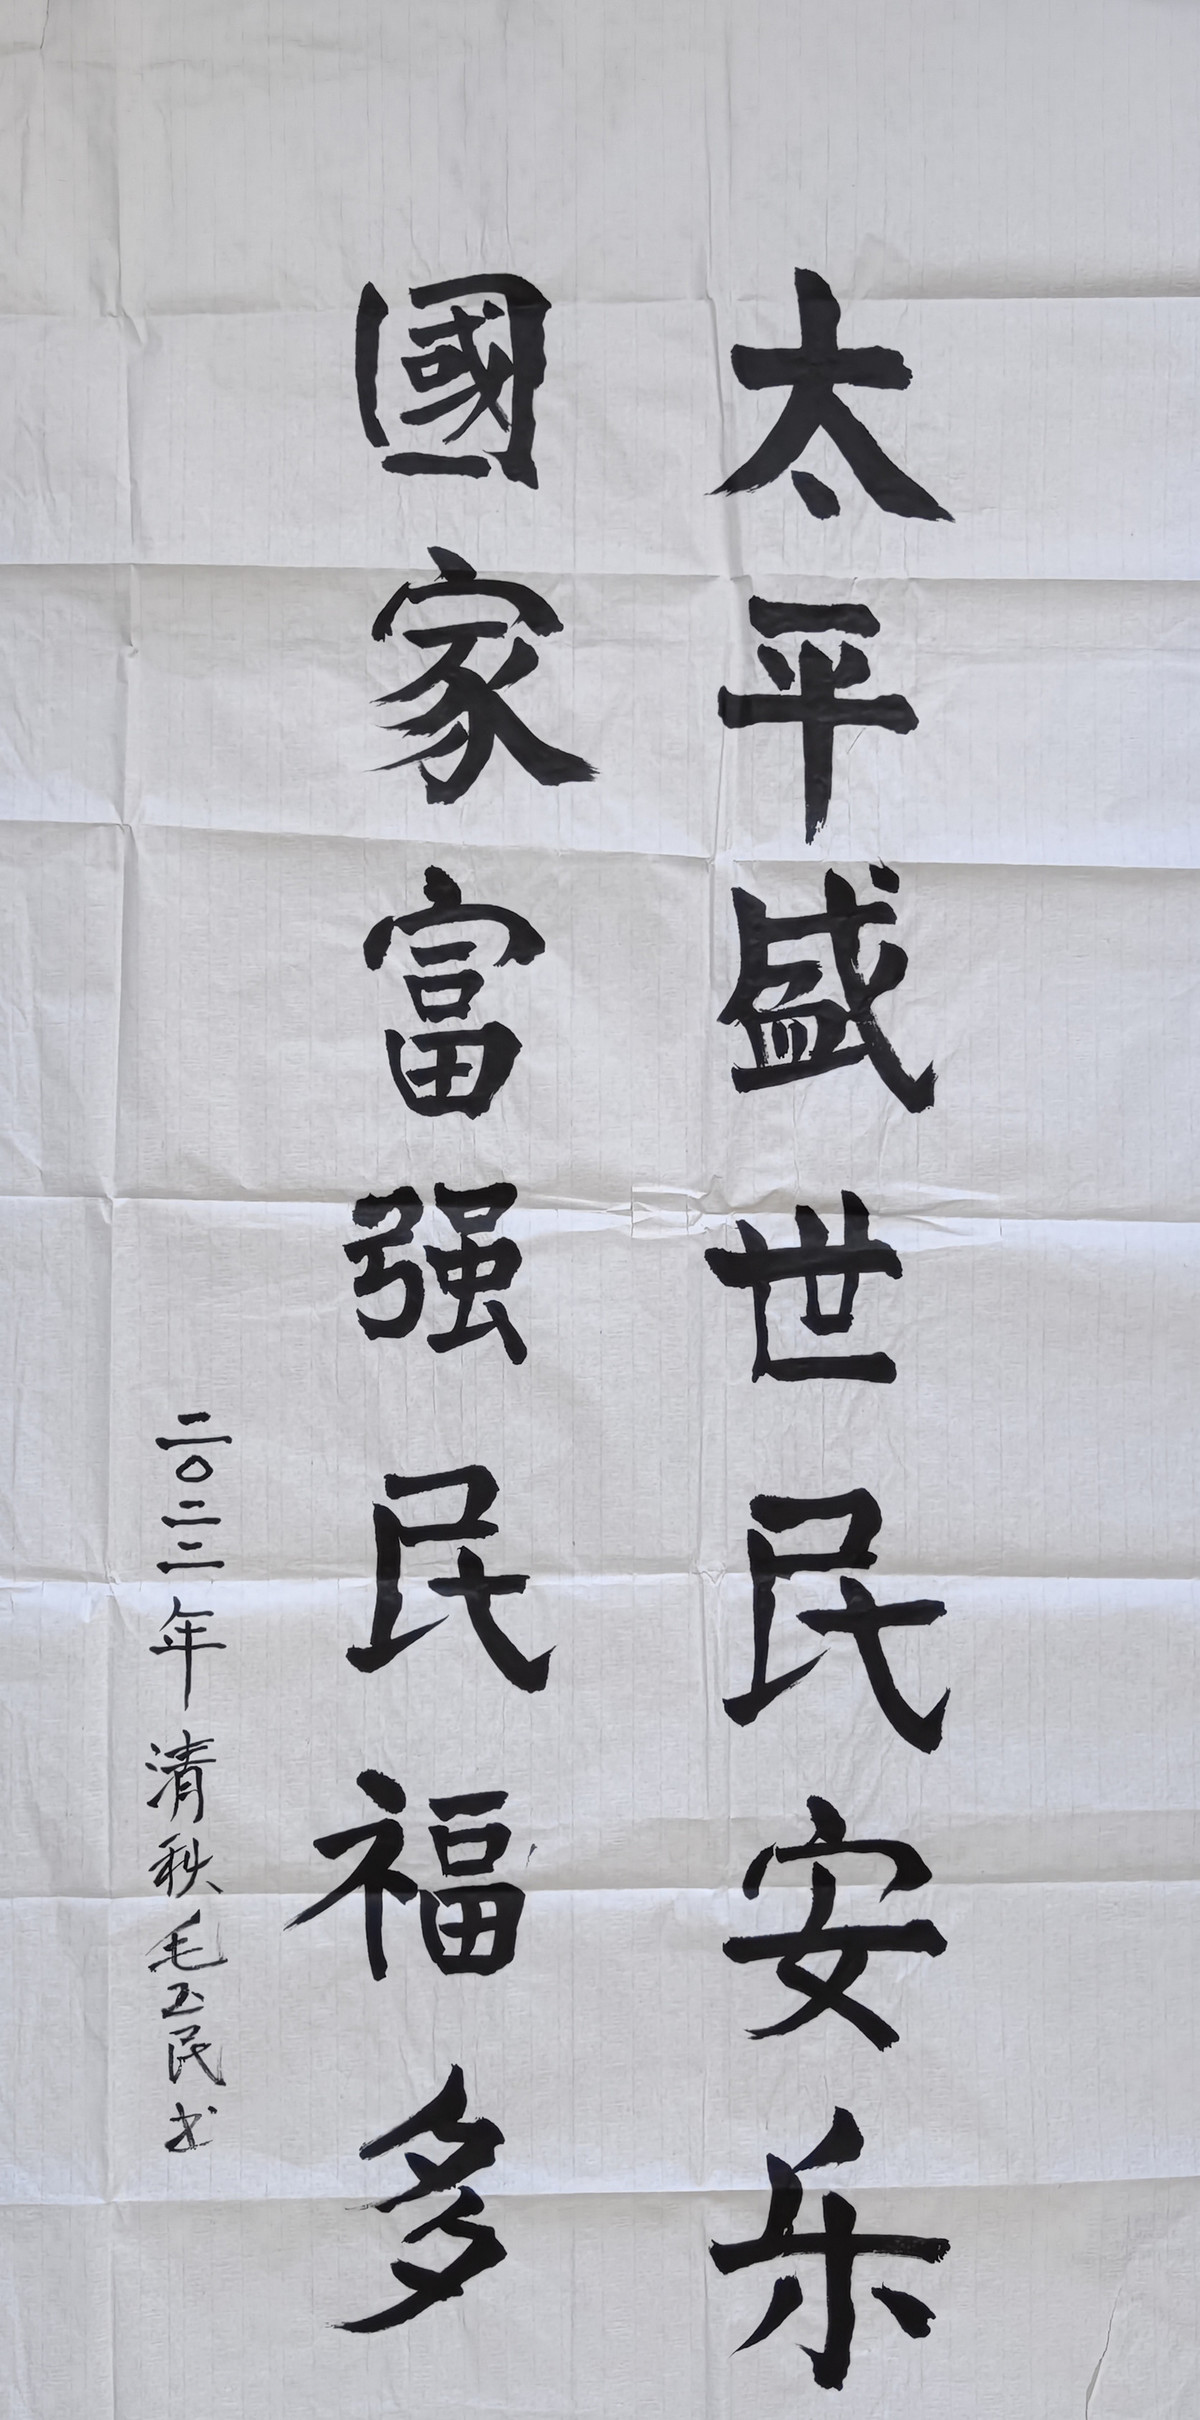 太平盛世民安乐
國家富强民福多
二〇二二年清秋毛玉民书